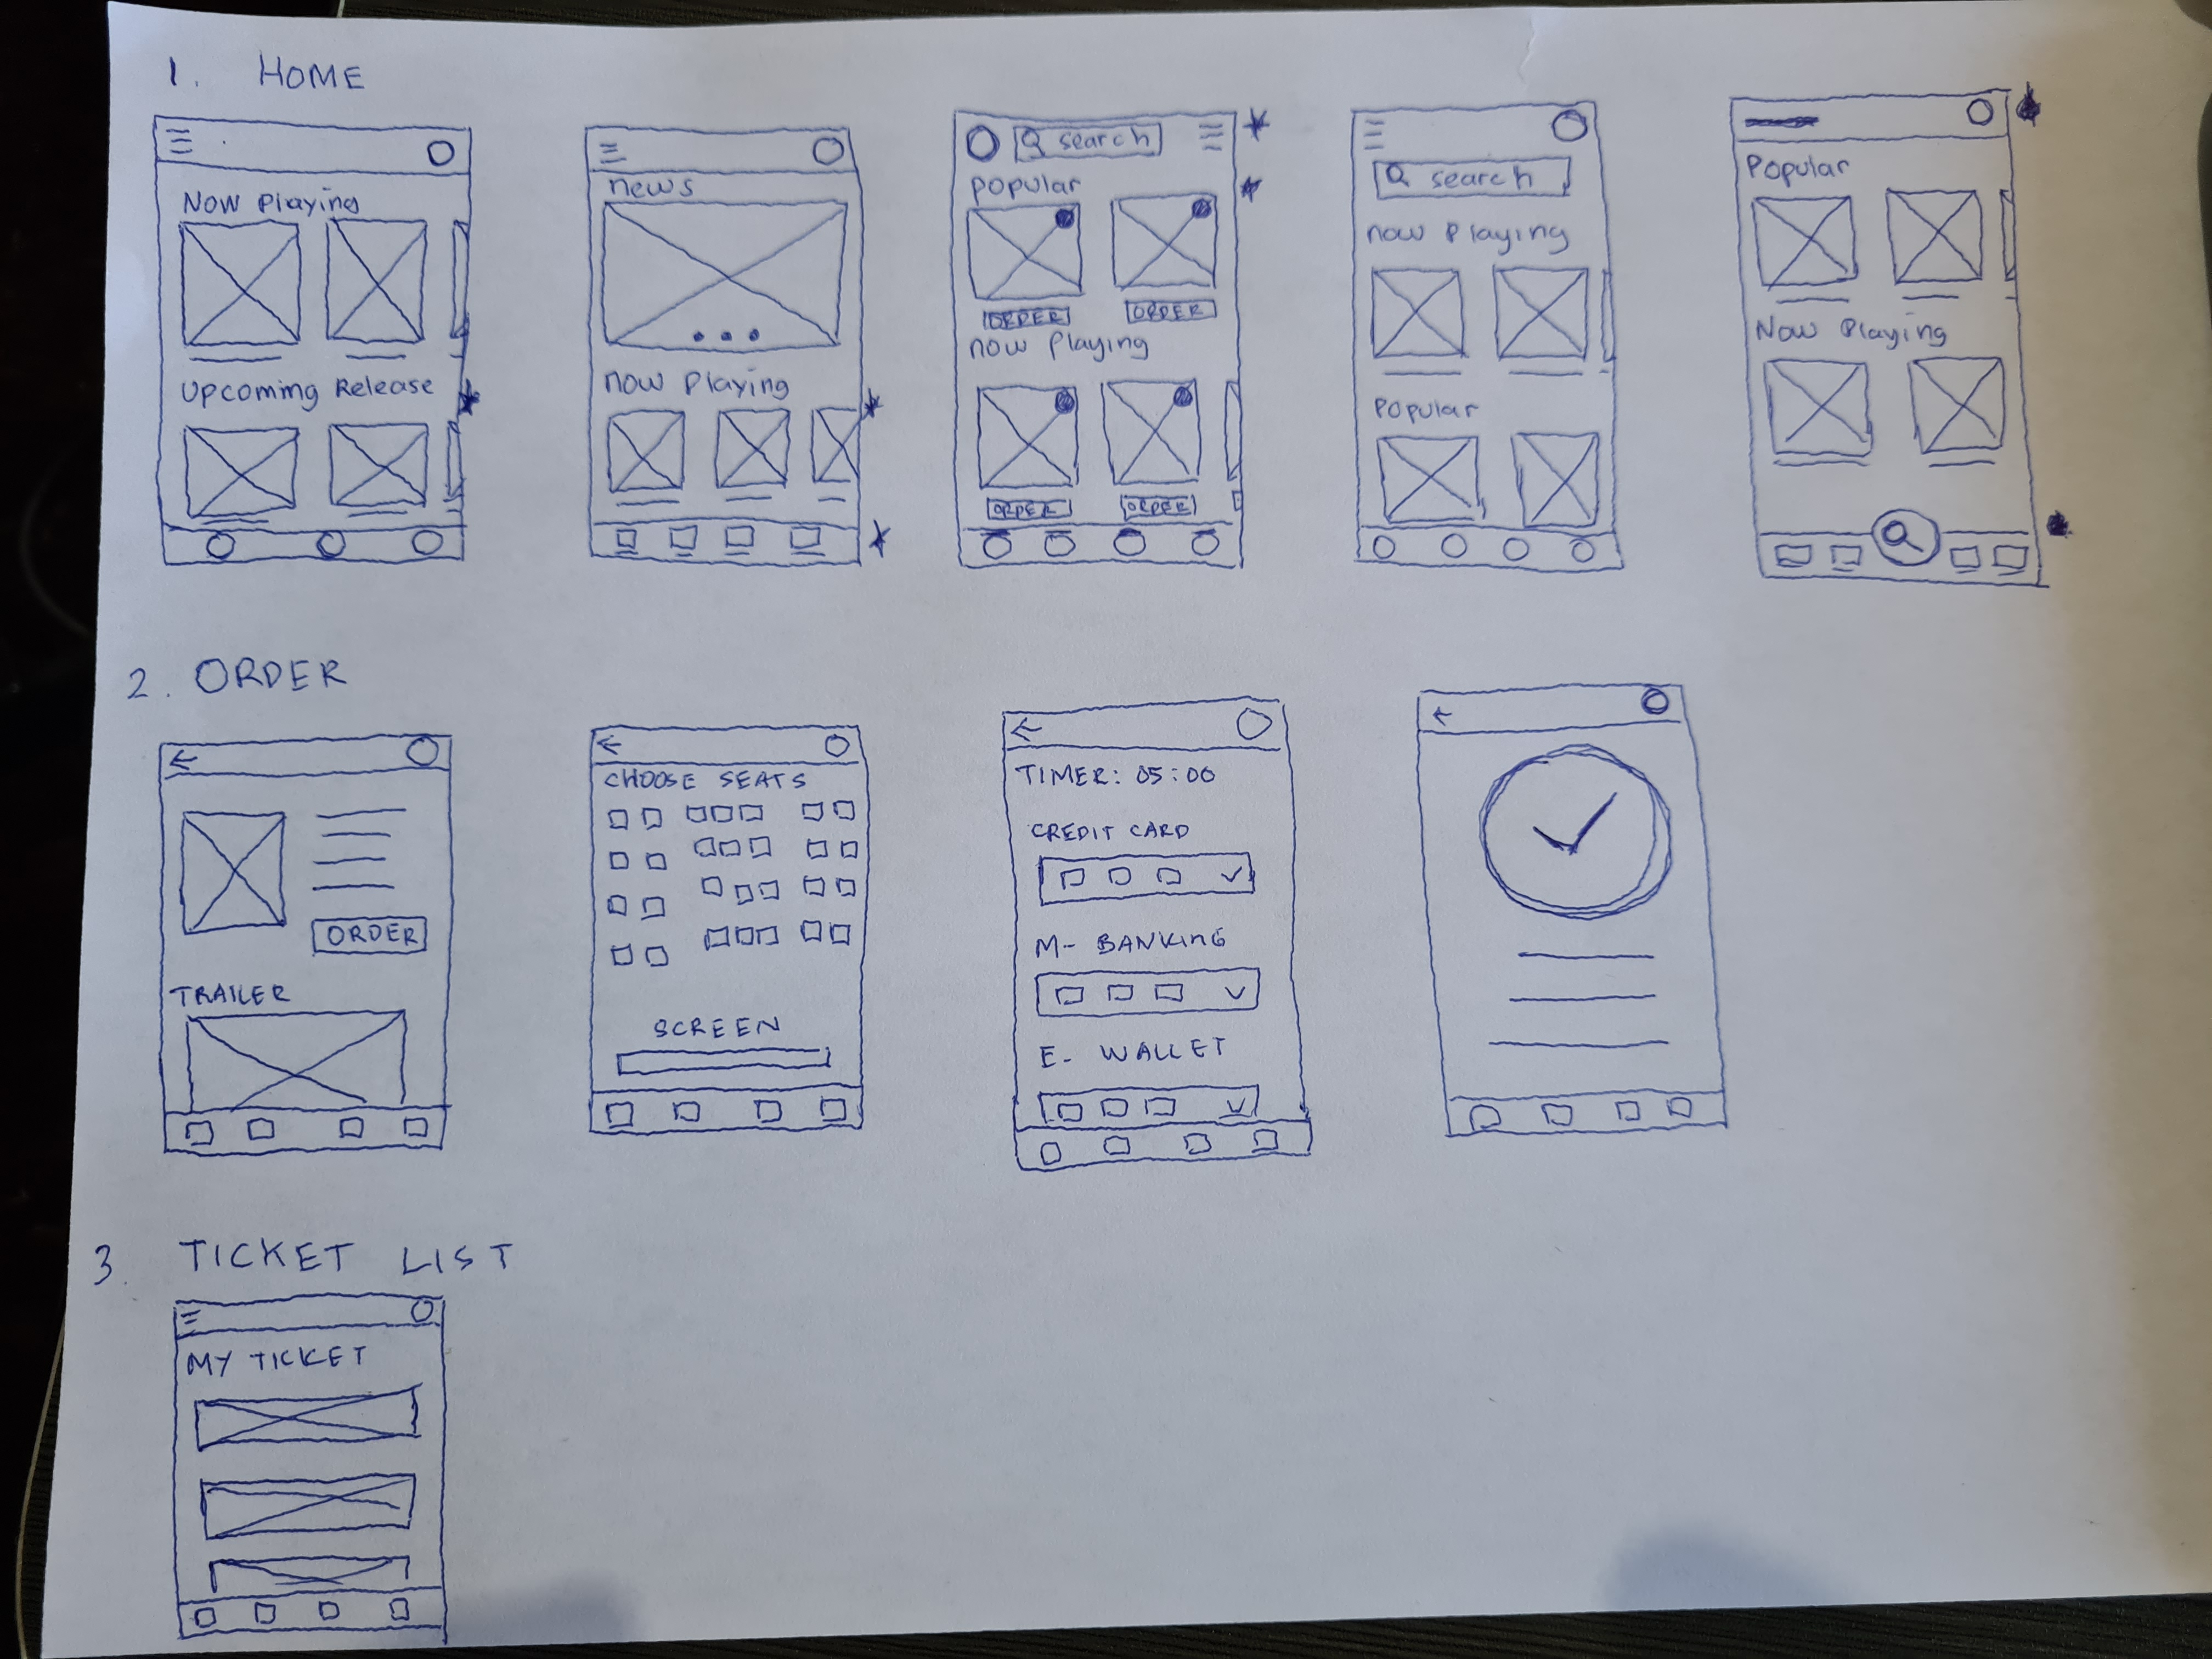 1. HOME
Now Playing
Upcoming Release
news
now Playing
search
popular
ORDER
ORDER
now Playing
ORDER
ORDER
search
now Playing
Popular
Popular
Now Playing
2. ORDER
ORDER
TRAILER
CHOOSE SEATS
SCREEN
TIMER: 05:00
CREDIT CARD
M- BANKING
E- WALLET
3. TICKET LIST
MY TICKET